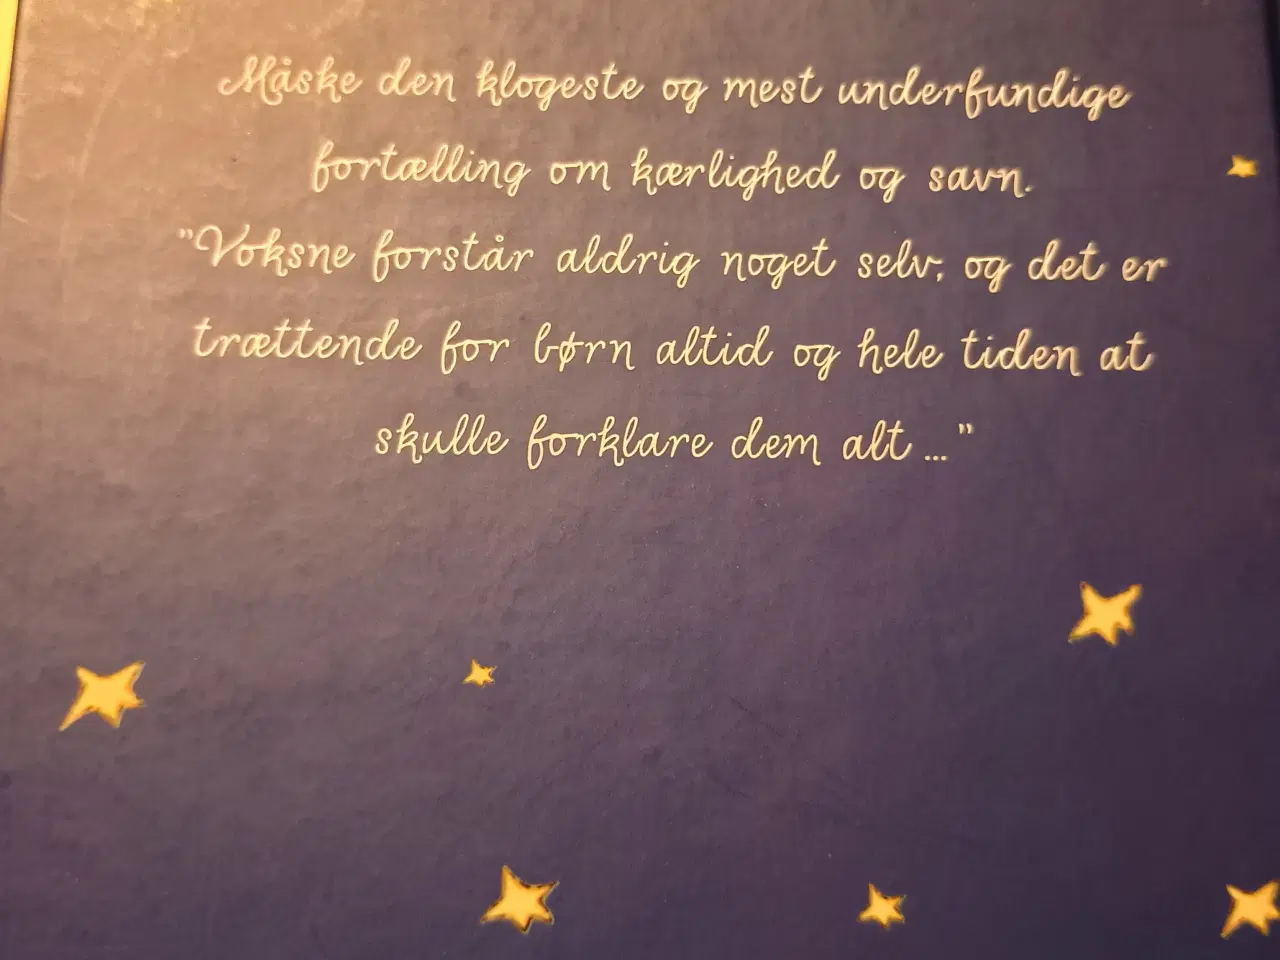 Måske den klogeste og mest underfundige
fortælling om kærlighed og savn.
"Voksne forstår aldrig noget selv, og det er
trættende for børn altid og hele tiden at
skulle forklare dem alt ..."